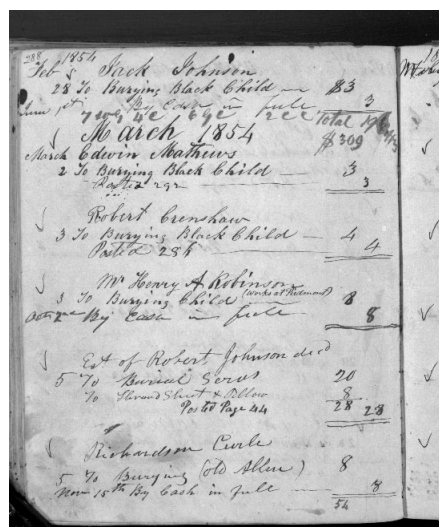 288
1854
Feb Jack Johnson
28 To Burying Black Child $3
June 1st By Cash in full 3
7 wg 4c 6gc 2cc Total 19
March 1854 $309
March Edwin Mathews
2 To Burying Black Child 3
Posted 292 3
Robert Crenshaw
3 To Burying Black Child 4
Posted 284 4
Mr Henry A Robinson
3 To Burying Child (works at Redmond) 8
By Cash in full 8
Est of Robert Johnson decd
5 To Burial 20
To Shroud Sheet & Pillow 8
Posted Page 44 28 28
Richardson
5 To Burying (old Allen) 8
Nov 15th By Cash in full 8
54